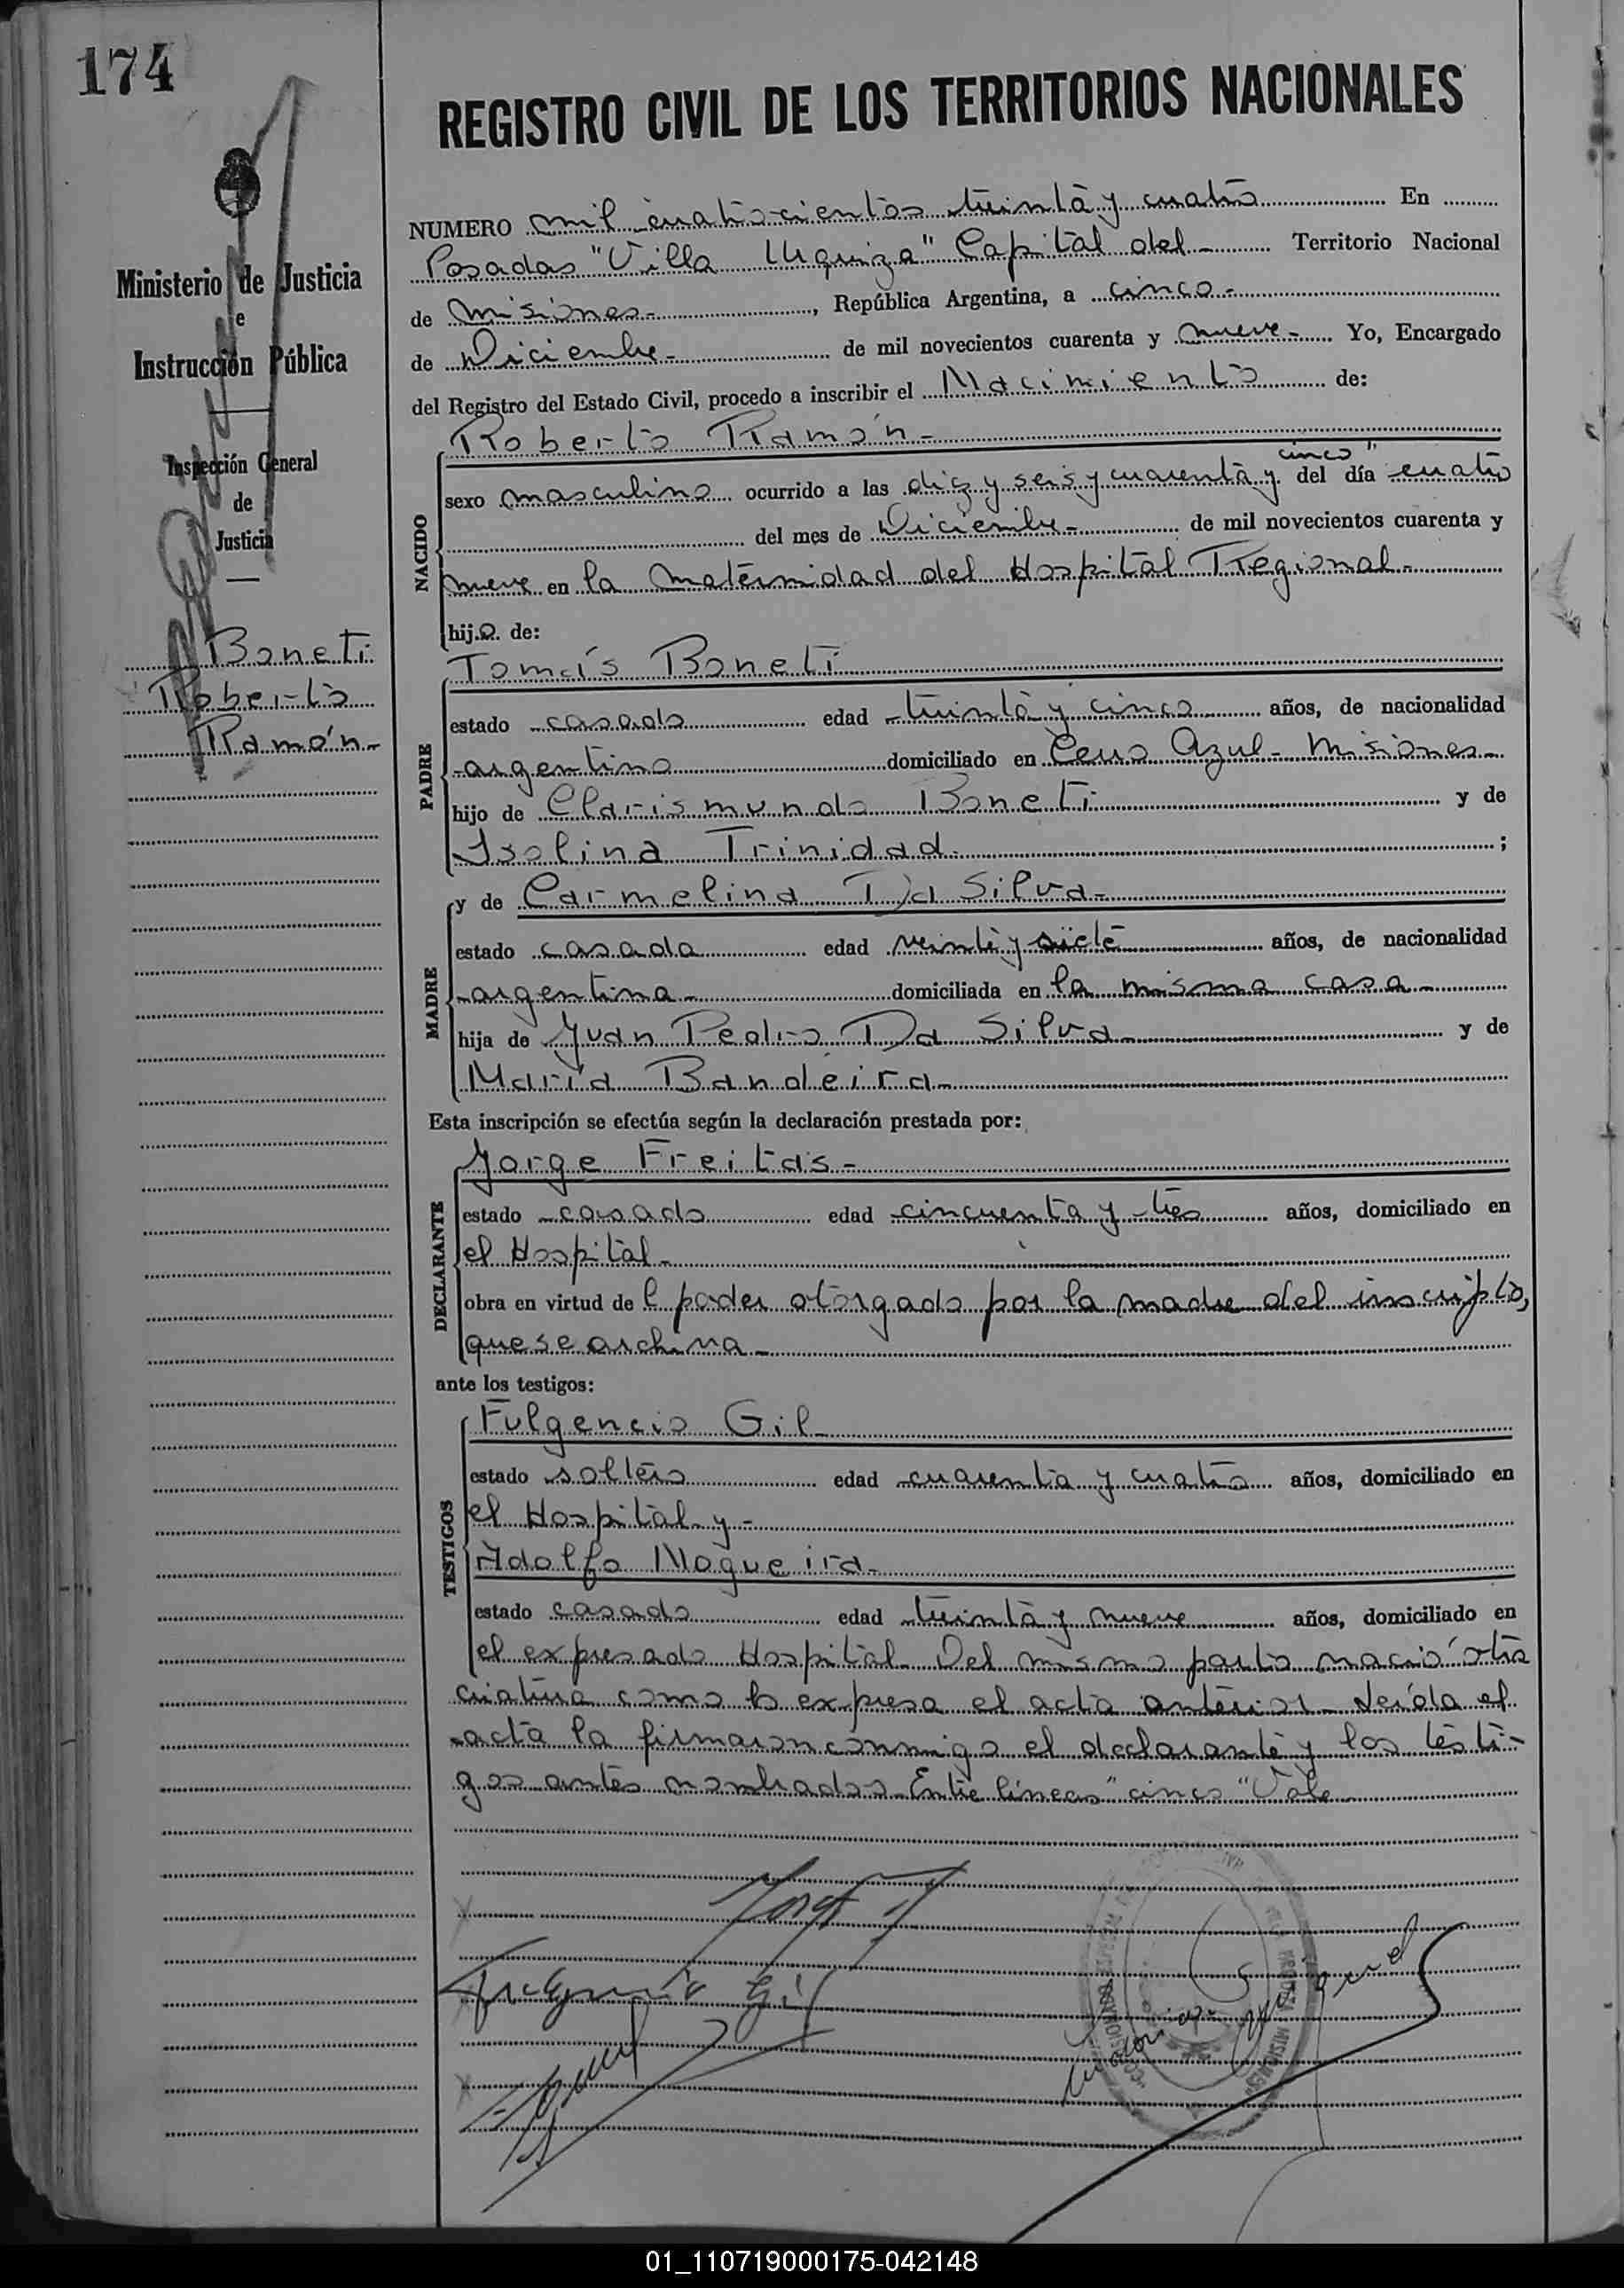 174
REGISTRO CIVIL DE LOS TERRITORIOS NACIONALES
Ministerio de Justicia
e
Instrucción Pública
Inspección General
de
Justicia
Boneti
Roberto
Ramón.-
NUMERO mil cuatrocientos treinta y cuatro En
Posadas "Villa Urquiza" Capital del- Territorio Nacional
de Misiones-, República Argentina, a cinco-
de Diciembre- de mil novecientos cuarenta y nueve- Yo, Encargado
del Registro del Estado Civil, procedo a inscribir el Nacimiento de:
NACIDO
Roberto Ramón-
cinco"
sexo masculino ocurrido a las diez y seis y cuarenta y del día cuatro
del mes de Diciembre- de mil novecientos cuarenta y
nueve en la maternidad del Hospital Regional-
hijo de:
PADRE
Tomás Boneti
estado casado edad treinta y cinco años, de nacionalidad
argentino domiciliado en Cerro Azul- Misiones-
hijo de Clarismundo Boneti y de
Isolina Trinidad- ;
MADRE
y de Carmelina Da Silva-
estado casada edad veinte y siete años, de nacionalidad
argentina- domiciliada en la misma casa-
hija de Juan Pedro Da Silva- y de
María Bandeira-
Esta inscripción se efectúa según la declaración prestada por:
DECLARANTE
Jorge Freitas-
estado casado edad cincuenta y tres años, domiciliado en
el Hospital-
obra en virtud de l poder otorgado por la madre del inscripto,
que se archiva-
ante los testigos:
TESTIGOS
Fulgencio Gil-
estado soltero edad cuarenta y cuatro años, domiciliado en
el Hospital y-
Adolfo Nogueira-
estado casado edad treinta y nueve años, domiciliado en
el expresado Hospital- Del mismo parto nació otra
criatura como lo expresa el acta anterior- Leída el
acta la firmaron conmigo el declarante y los testi-
gos antes nombrados- Entre líneas "cinco" Vale
Fulgencio Gil
01_110719000175-042148